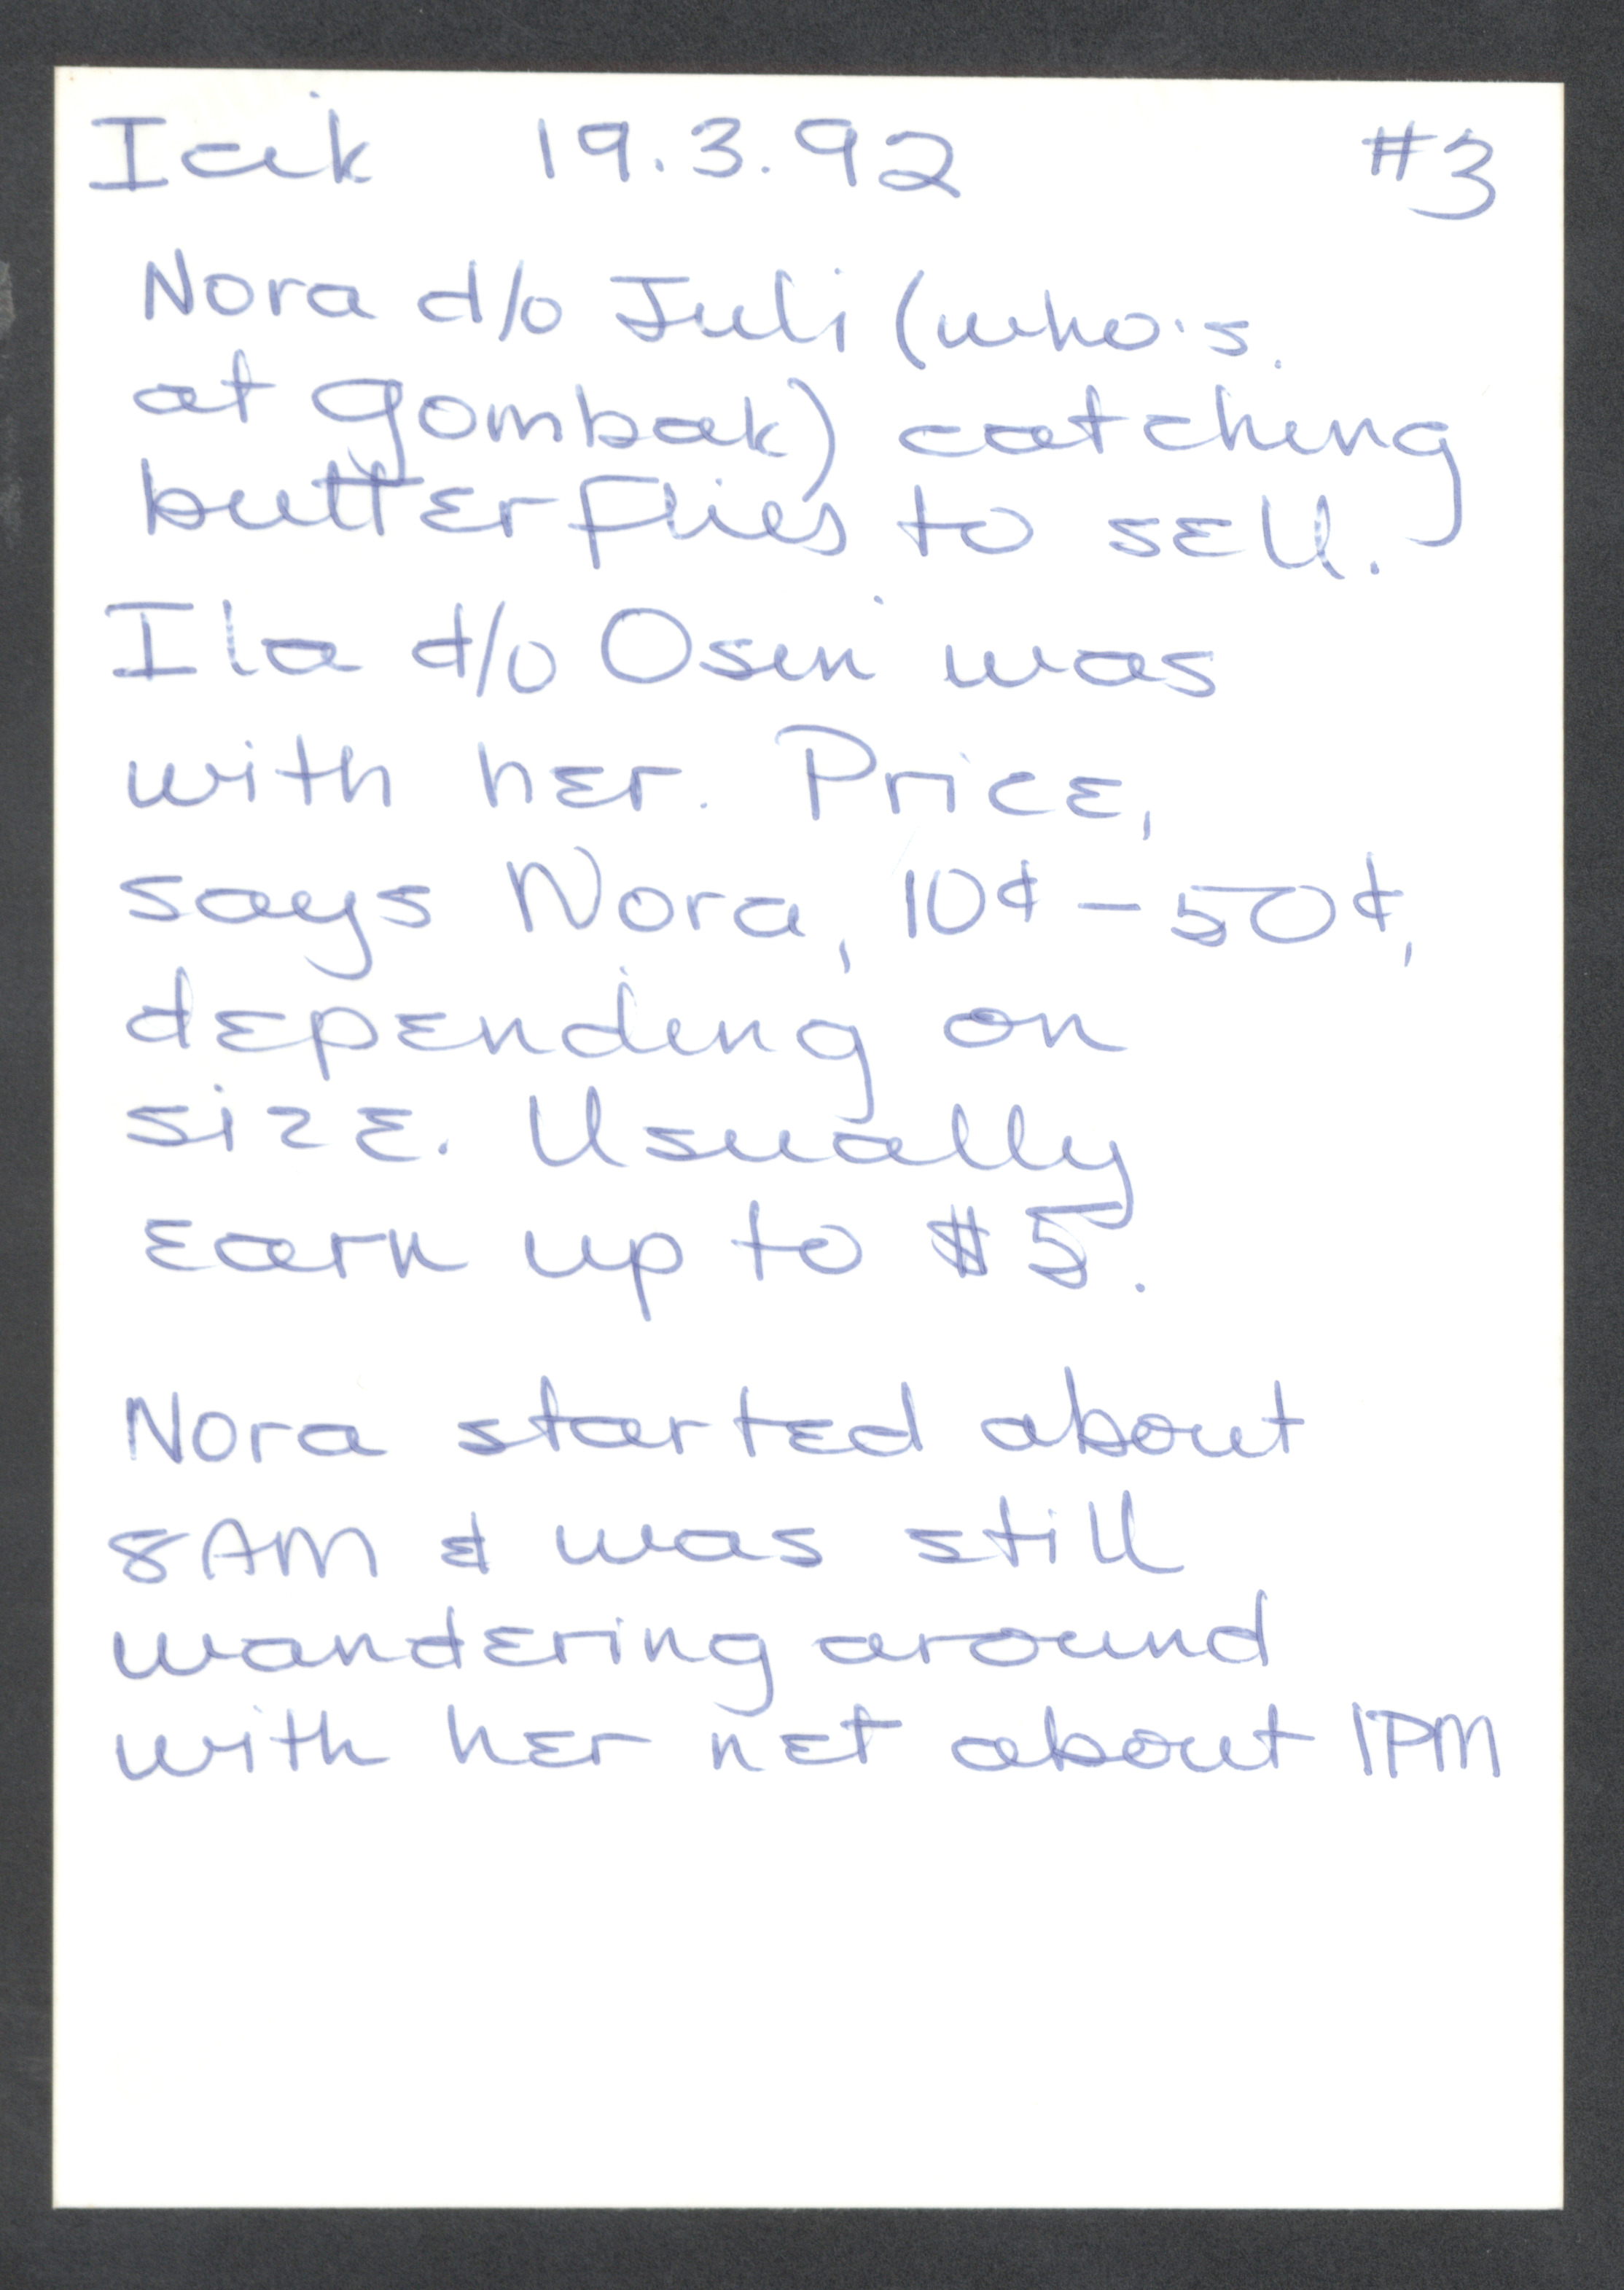 Iaik 19.3.92 #3
Nora d/o Juli (who's
at Gombak) catching
butterflies to sell.
Ila d/o Osin was
with her. Price,
says Nora, 10¢ - 50¢,
depending on
size. Usually
earn up to $5.
Nora started about
8AM & was still
wandering around
with her net about 1PM